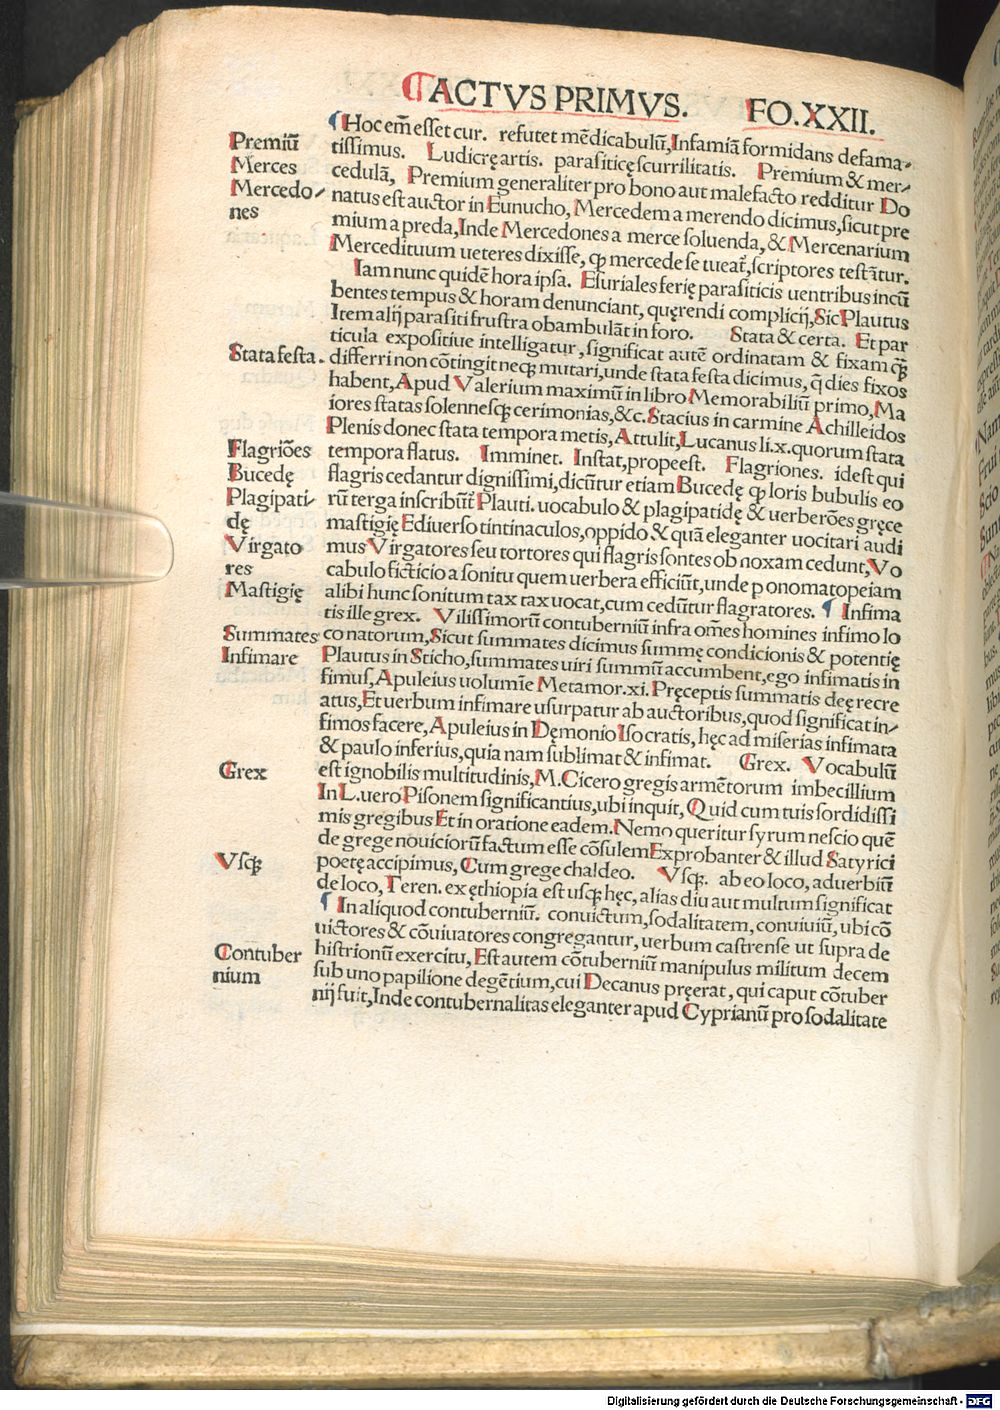 ACTVS PRIMVS. FO.XXII.
¶ Hoc em̄ esset cur. refutet mēdicabulū, Infamiā formidans defama-
tissimus. Ludicrę artis. parasiticę scurrilitatis. Premium & mer-
cedulā, Premium generaliter pro bono aut malefacto redditur Do
natus est auctor in Eunucho, Mercedem a merendo dicimus, sicut pre
mium a preda, Inde Mercedones a merce soluenda, & Mercenarium
Mercedituum ueteres dixisse, ꝙ mercede se tueat̄, scriptores testāt̄ur.
Iam nunc quidē hora ipsa. Esuriales ferię parasiticis uentribus incū
bentes tempus & horam denunciant, quęrendi complicij, Sic Plautus
Item alij parasiti frustra obambulāt in foro. Stata & certa. Et par
ticula expositiue intelligatur, significat autē ordinatam & fixam ꝗ̄ꝫ
differri non cōtingit neqꝫ mutari, unde stata festa dicimus, q̄ dies fixos
habent, Apud Valerium maximū in libro Memorabiliū primo, Ma
iores statas solennesqꝫ cerimonias, &c. Stacius in carmine Achilleidos
Plenis donec stata tempora metis, Attulit, Lucanus li.x. quorum stata
tempora flatus. Imminet. Instat, propeest. Flagriones. idest qui
flagris cedantur dignissimi, dicūtur etiam Bucedę ꝙ loris bubulis eo
rū terga inscribūt̄ Plauti. uocabulo & plagipatidę & uerberões gręce
mastigię Ediuerso tintinaculos, oppido & quā eleganter uocitari audi
mus Virgatores seu tortores qui flagris sontes ob noxam cedunt, Vo
cabulo ficticio a sonitu quem uerbera efficiūt, unde p onomatopeiam
alibi hunc sonitum tax tax uocat, cum cedūtur flagratores. ¶ Infima
tis ille grex. Vilissimorū contuberniū infra om̄es homines infimo lo
co natorum, Sicut summates dicimus summę condicionis & potentię
Plautus in Sticho, summates uiri summū accumbent, ego infimatis in
fimus, Apuleius uolumīe Metamor.xi. Pręceptis summatis deę recre
atus, Et uerbum infimare usurpatur ab auctoribus, quod significat in-
fimos facere, Apuleius in Dęmonio Isocratis, hęc ad miserias infimata
& paulo inferius, quia nam sublimat & infimat. Grex. Vocabulū
est ignobilis multitudinis, M. Cicero gregis armētorum imbecillium
In L. uero Pisonem significantius, ubi inquit, Quid cum tuis sordidissi
mis gregibus Et in oratione eadem. Nemo queritur syrum nescio quē
de grege nouiciorū factum esse cōsulem Exprobanter & illud Satyrici
poetę accipimus, Cum grege chaldeo. Vsqꝫ. ab eo loco, aduerbiū
de loco, Teren. ex ęthiopia est usqꝫ hęc, alias diu aut multum significat
¶ In aliquod contuberniū. conuictum, sodalitatem, conuiuiū, ubi cō
uictores & cōuiuatores congregantur, uerbum castrense ut supra de
histrionū exercitu, Est autem cōtuberniū manipulus militum decem
sub uno papilione degētium, cui Decanus pręerat, qui caput cōtuber
nij fuit, Inde contubernalitas eleganter apud Cyprianū pro sodalitate
Premiū
Merces
Mercedo-
nes
Stata festa.
Flagriões
Bucedę
Plagipati-
dę
Virgato
res
Mastigię
Summates
Infimare
Grex
Vsqꝫ
Contuber
nium
Digitalisierung gefördert durch die Deutsche Forschungsgemeinschaft - DFG